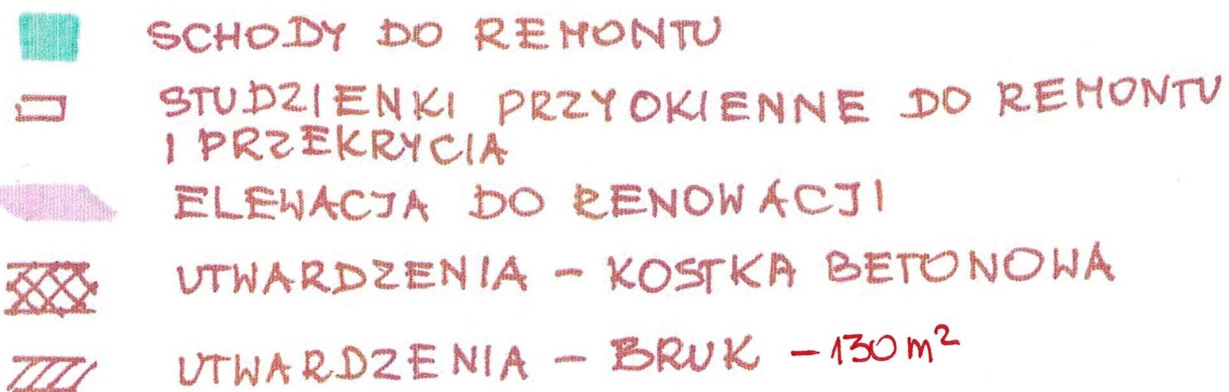 SCHODY DO REMONTU
STUDZIENKI PRZYOKIENNE DO REMONTU
I PRZEKRYCIA
ELEWACJA DO RENOWACJI
UTWARDZENIA - KOSTKA BETONOWA
UTWARDZENIA - BRUK - 130 m²